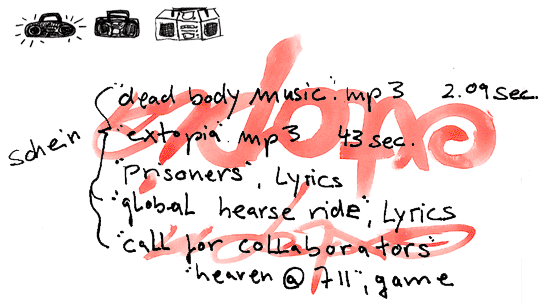 "dead body music".mp3 2.09 sec.
schein "extopia".mp3 43 sec.
"Prisoners", Lyrics
"global hearse ride", Lyrics
"call for collaborators"
"heaven @ 711", game